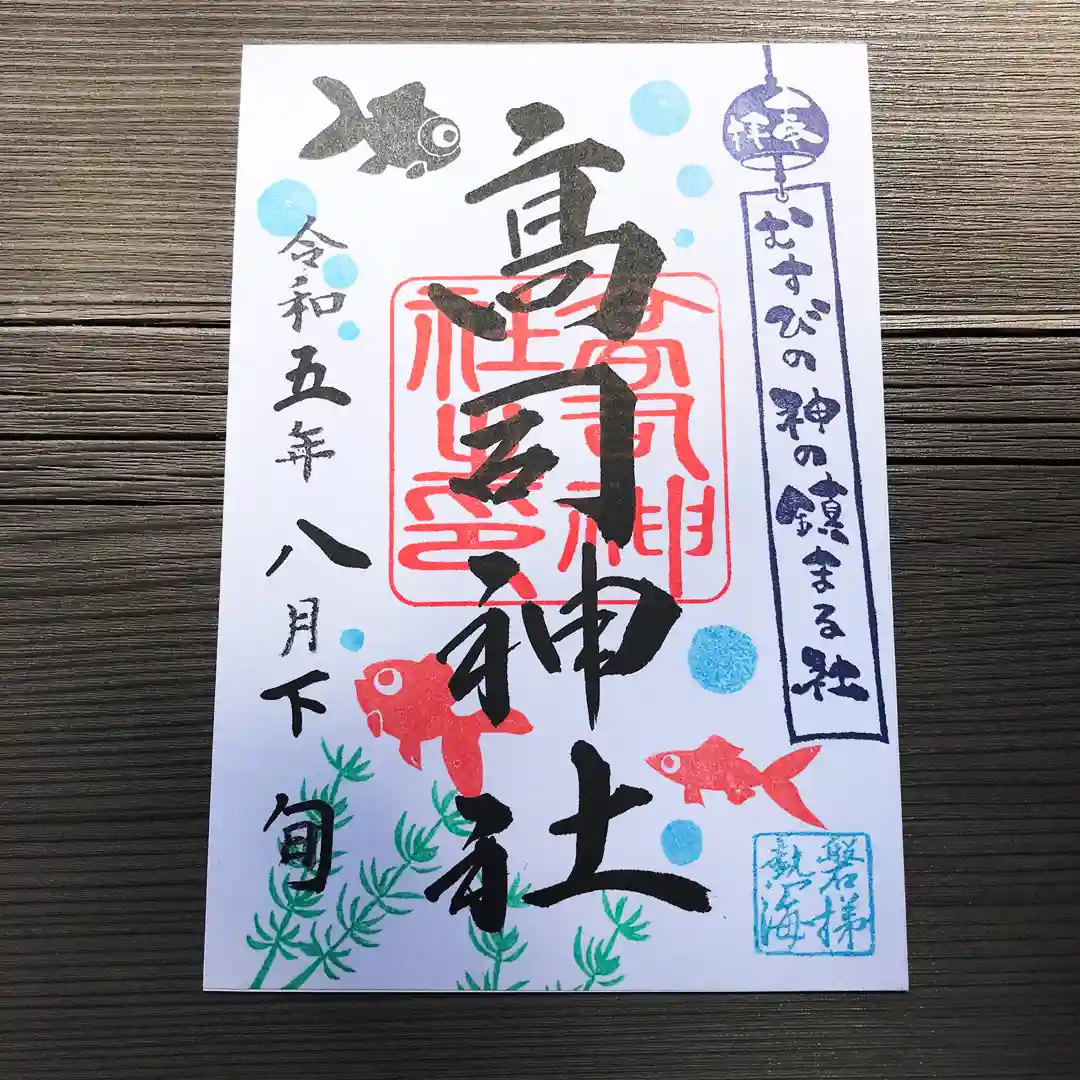 奉拝
むすびの神の鎮まる社
高司神社
高司神社之印
令和五年八月下旬
磐梯
熱海